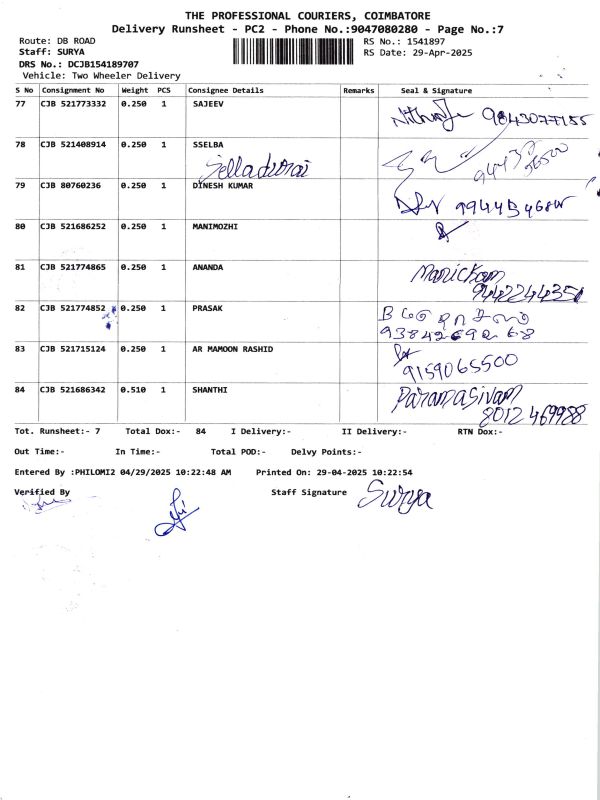 THE PROFESSIONAL COURIERS, COIMBATORE
Delivery Runsheet - PC2 - Phone No.:9047080280 - Page No.:7
Route: DB ROAD RS No.: 1541897
Staff: SURYA RS Date: 29-Apr-2025
DRS No.: DCJB154189707
Vehicle: Two Wheeler Delivery
S No Consignment No Weight PCS Consignee Details Remarks Seal & Signature
77 CJB 521773332 0.250 1 SAJEEV 9843077155
78 CJB 521408914 0.250 1 SSELBA
Selladurai
79 CJB 80760236 0.250 1 DINESH KUMAR
80 CJB 521686252 0.250 1 MANIMOZHI
81 CJB 521774865 0.250 1 ANANDA Manickam
9442244351
82 CJB 521774852 0.250 1 PRASAK
83 CJB 521715124 0.250 1 AR MAMOON RASHID
9159065500
84 CJB 521686342 0.510 1 SHANTHI Paramasivam
8012469988
Tot. Runsheet:- 7 Total Dox:- 84 I Delivery:- II Delivery:- RTN Dox:-
Out Time:- In Time:- Total POD:- Delvy Points:-
Entered By :PHILOMI2 04/29/2025 10:22:48 AM Printed On: 29-04-2025 10:22:54
Verified By Staff Signature Surya